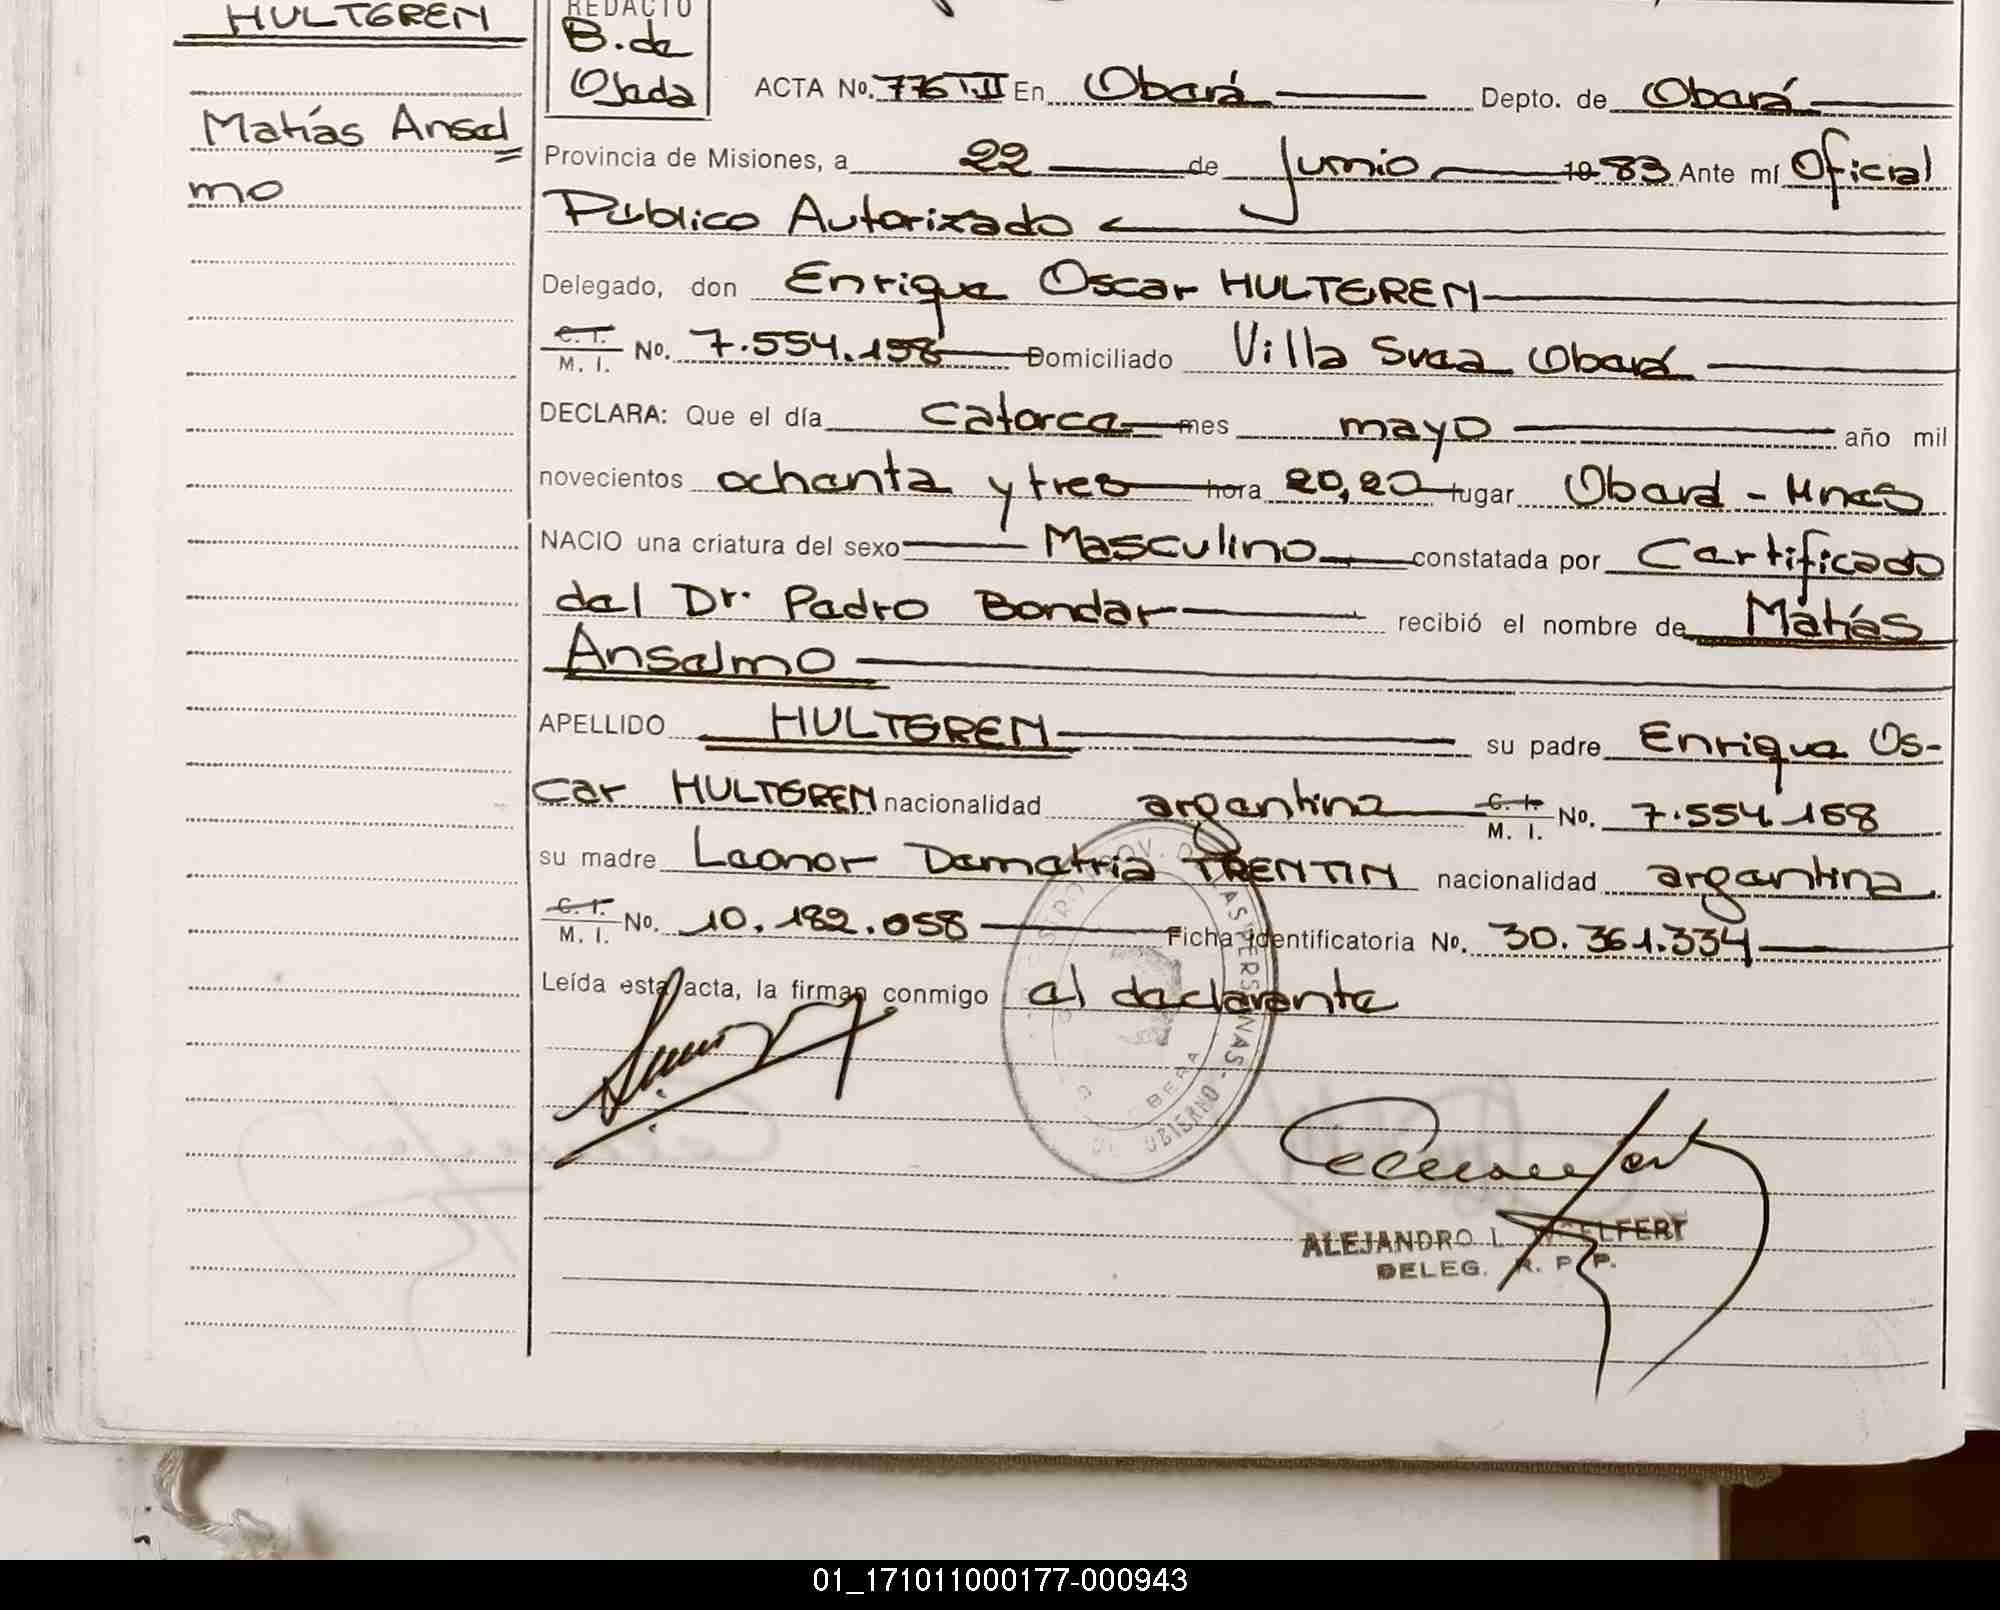 HULTGREN
REDACTO
B. de
Ojeda
Matías Ansel
mo
ACTA No. 776 T.II En Oberá Depto. de Oberá
Provincia de Misiones, a 22 de Junio 19 83 Ante mí Oficial
Publico Autorizado
Delegado, don Enrique Oscar HULTGREN
C. I. M. I. No. 7.554.158 Domiciliado Villa Svea Oberá
DECLARA: Que el día catorce mes mayo año mil
novecientos ochenta y tres hora 20,20 lugar Oberá - Mnes
NACIO una criatura del sexo Masculino constatada por Certificado
del Dr. Pedro Bondar recibió el nombre de Matías
Anselmo
APELLIDO HULTGREN su padre Enrique Os-
car HULTGREN nacionalidad argentina C. I. M. I. No. 7.554.158
su madre Leonor Demetria TRENTIN nacionalidad argentina.
C. I. M. I. No. 10.182.058 Ficha identificatoria No. 30.361.334
Leída esta acta, la firman conmigo el declarante
ALEJANDRO L.
DELEG. R. P. P.
01_171011000177-000943